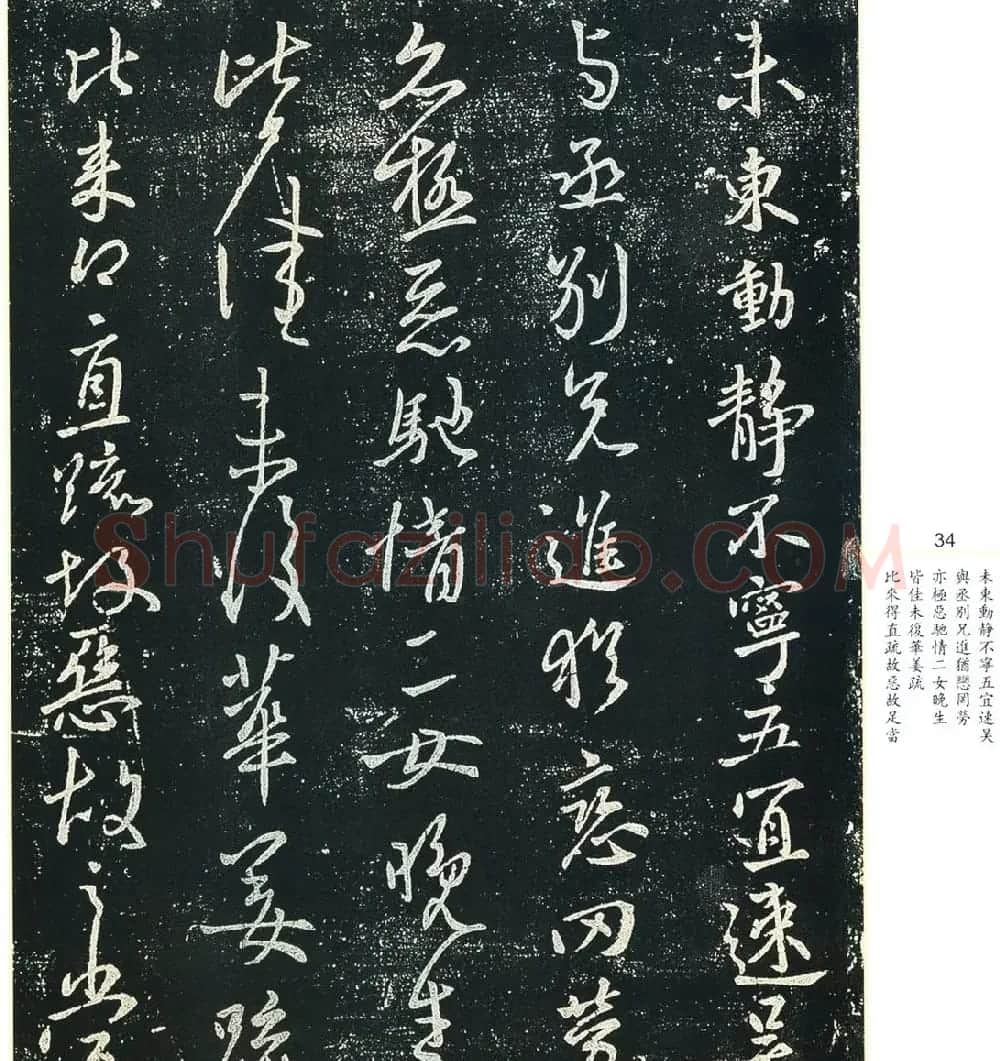 未東動靜不寧五宜速吳
与丞別兄進猶戀罔勞
亦極惡馳情二女晚生
皆佳未復華姜疏
比來得直疏故惡故足當
34
未東動静不寧五宜速吴
與丞别兄進猶戀罔勞
亦極惡馳情二女晚生
皆佳未復華姜疏
比來得直疏故惡故足當
Shufaziliao.COM